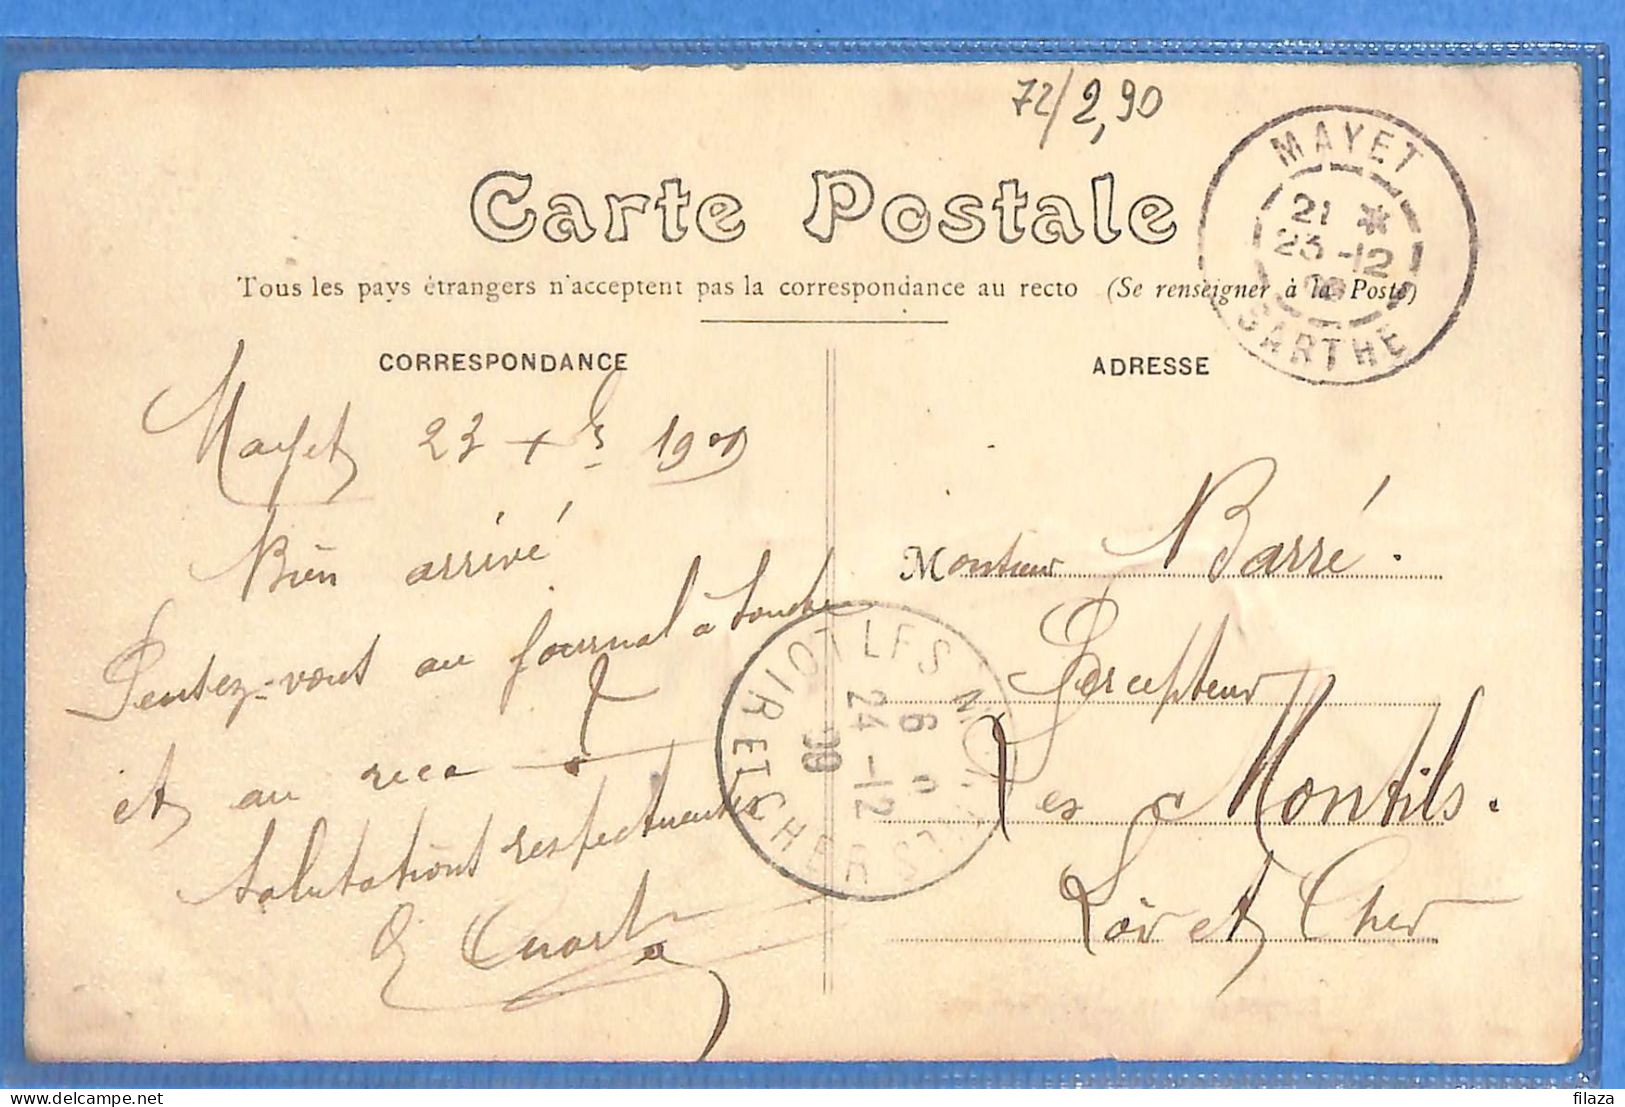 72/2,90
Carte Postale
Tous les pays étrangers n'acceptent pas la correspondance au recto (Se renseigner à la Poste)
MAYET
21 *
23-12
09
SARTHE
CORRESPONDANCE
Mayet 23 Xbre 1909
Bien arrivé
Pensez-vous au journal à souche
et au rece
Salutations respectueuses
ADRESSE
Monsieur Barré.
Percepteur
Les Montils.
Loir et Cher
LES MONTILS
6
24-12
09
LOIR ET CHER
filaza